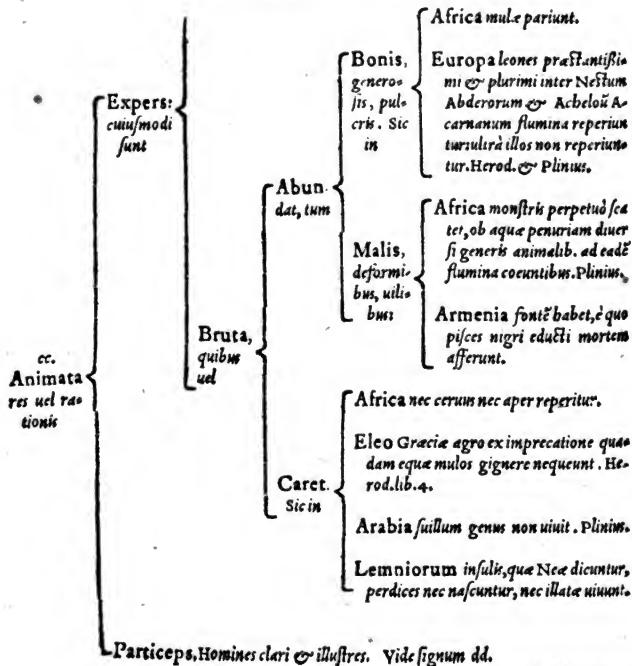 cc.
Animata
res uel ra-
tionis
Expers:
cuiuſmodi
ſunt
Bruta,
quibus
uel
Abun-
dat, tum
Bonis,
genero-
ſis, pul-
cris. Sic
in
Africa mulæ pariunt.
Europa leones præſtantißi-
mi & plurimi inter Neſtum
Abderorum & Acheloũ A-
carnanum flumina reperiun
tur:ultrà illos non reperiun-
tur.Herod.& Plinius.
Malis,
deformi-
bus, uili-
bus:
Africa monſtris perpetuò ſca
tet, ob aquæ penuriam diuer
ſi generis animalib. ad eadẽ
flumina coeuntibus.Plinius.
Armenia fontẽ habet, è quo
piſces nigri educti mortem
afferunt.
Caret.
Sic in
Africa nec ceruus nec aper reperitur.
Eleo Græciæ agro ex imprecatione qua-
dam equæ mulos gignere nequeunt. He-
rod.lib.4.
Arabia ſuillum genus non uiuit. Plinius.
Lemniorum inſulis, quæ Neæ dicuntur,
perdices nec naſcuntur, nec illatæ uiuunt.
Particeps, Homines clari & illuſtres. Vide ſignum dd.